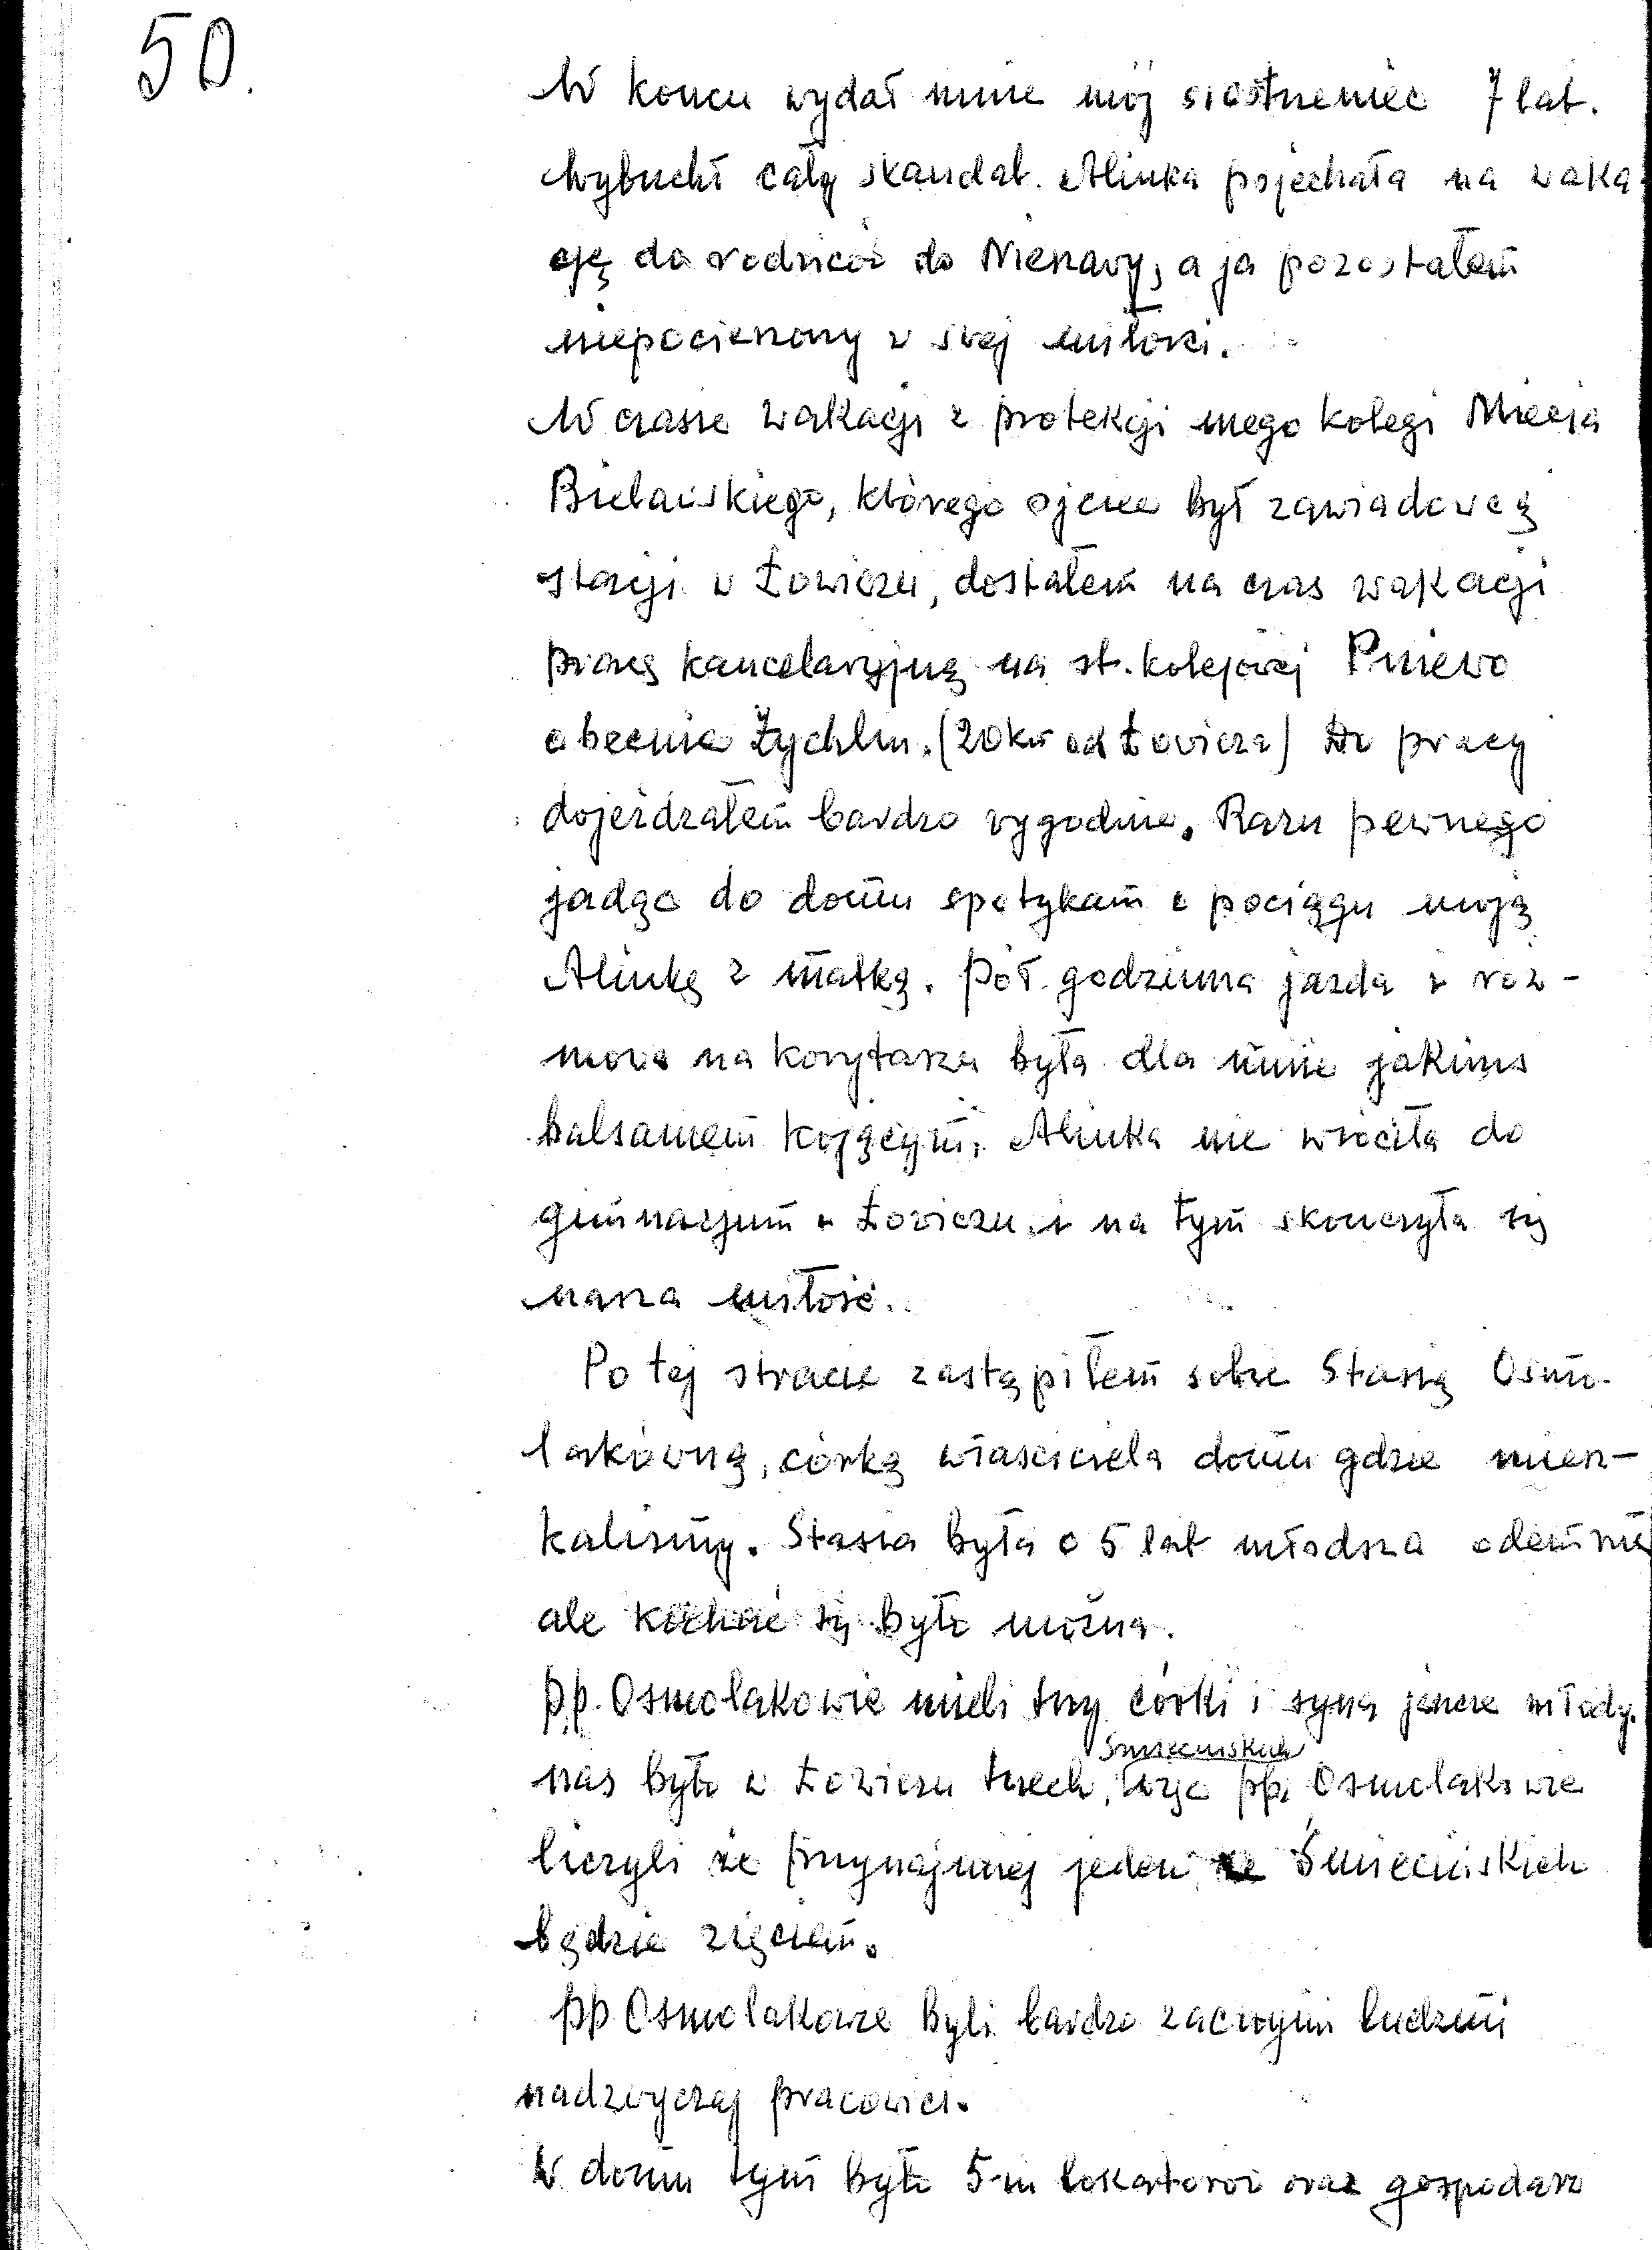 50.
W koncu wydał mnie mój siostrzeniec 7 lat.
Wybuchł cały skandal. Alinka pojechała na waka-
cję do rodziców do Nieszawy, a ja pozostałem
niepocieszony w swej miłości.
W czasie wakacji z protekcji mego kolegi Miecia
Bielawskiego, którego ojciec był zawiadowcą
stacji w Łowiczu, dostałem na czas wakacji
pracę kancelaryjną na st. kolejowej Pniewo
obecnie Żychlin. (20 km od Łowicza) Do pracy
dojeżdżałem bardzo wygodnie. Razu pewnego
jadąc do domu spotykam w pociągu moją
Alinkę z matką. Pół godzinna jazda i roz-
mowa na korytarzu była dla mnie jakims
balsamem kojącym. Alinka nie wróciła do
gimnazjum w Łowiczu, i na tym skonczyła się
nasza miłość.
Po tej stracie zastąpiłem sobie Stasią Osmo-
lakówną, córką własciciela domu gdzie miesz-
kalismy. Stasia była o 5 lat młodsza odemnie
ale kochać się było można.
pp. Osmolakowie mieli trzy córki i syna jeszcze młody.
nas było w Łowiczu trzech, Smiecinskich więc pp. Osmolakowie
liczyli że przynajmniej jeden ze Śmiecińskich
będzie zięciem.
pp Osmolakowie byli bardzo zacnymi ludzmi
nadzwyczaj pracowici.
W domu tym było 5-iu lokatorów oraz gospodarz